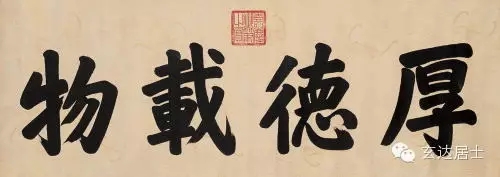 厚德載物
玄达居士